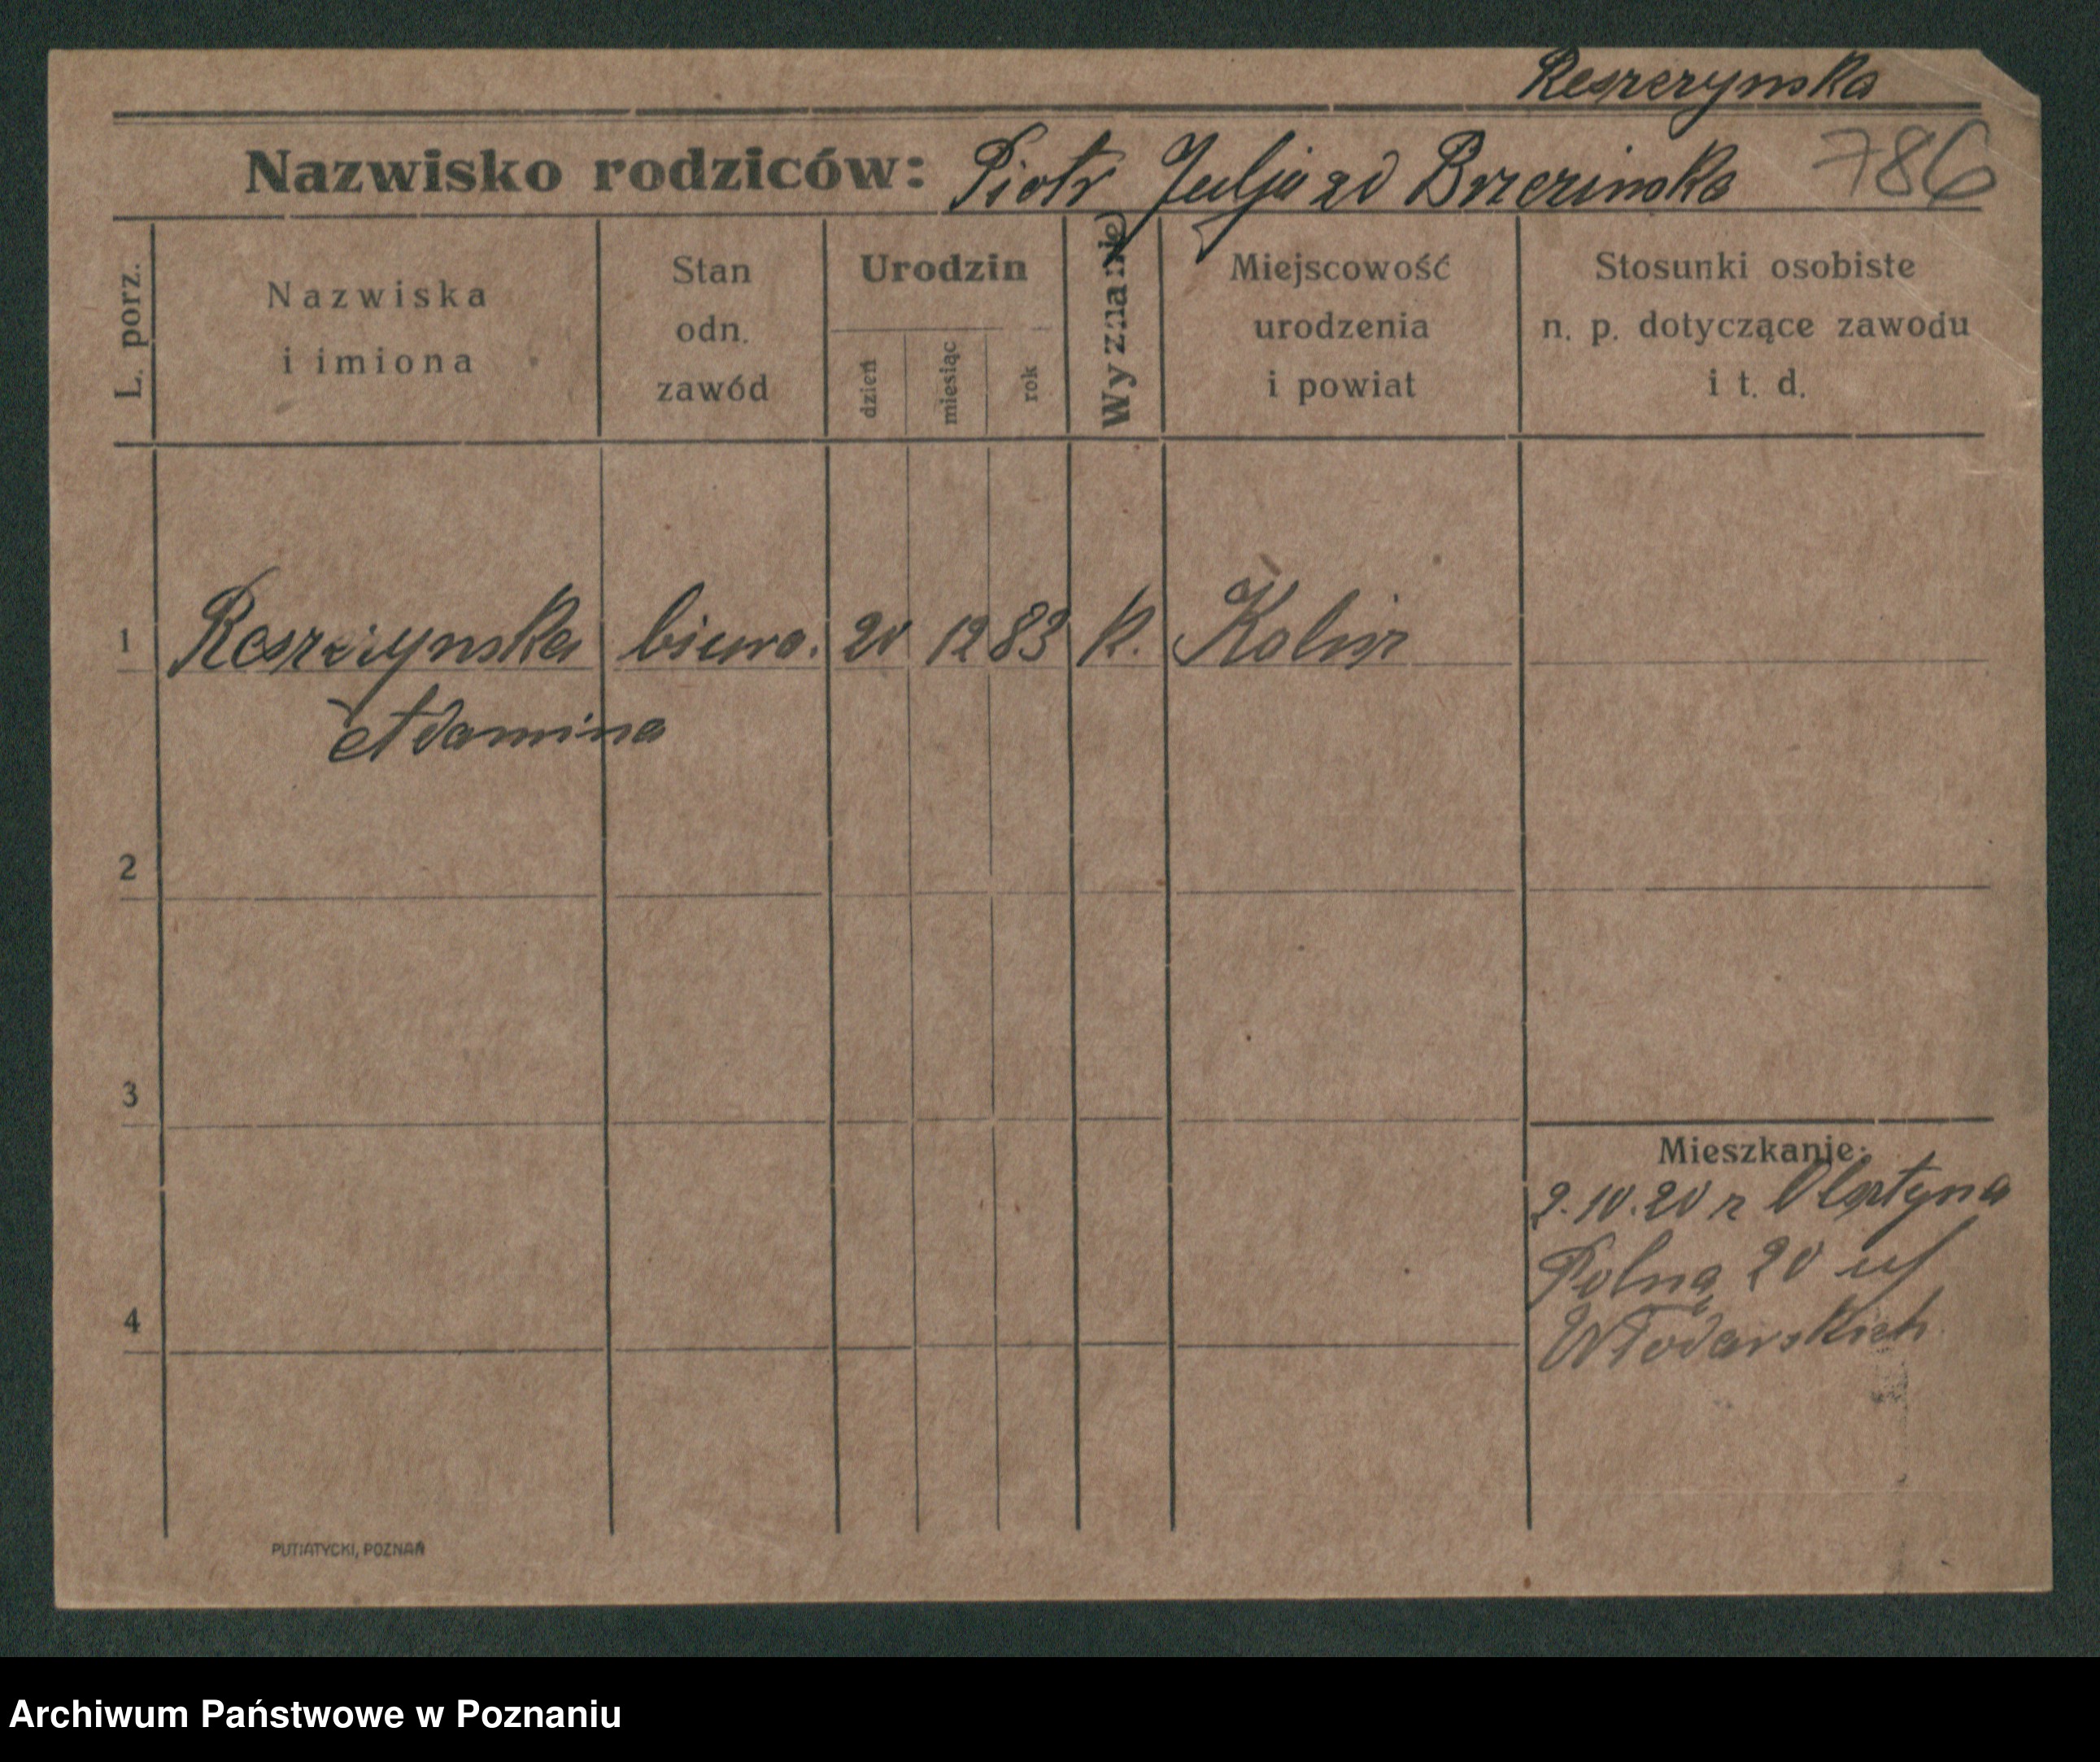 Reszczynska
Nazwisko rodziców: Piotr Julja zd Brzezinska 786
L. porz.
Nazwiska
i imiona
Stan
odn.
zawód
Urodzin
dzień
miesiąc
rok
Wyznanie
Miejscowość
urodzenia
i powiat
Stosunki osobiste
n. p. dotyczące zawodu
i t. d.
1 Reszczynska biuro. 20 12 83 k. Kalisz
Adamina
2
3
4
Mieszkanie:
2.10.20 z Olsztyna
Polna 20 u/
Włodarskich
PUTIATYCKI, POZNAŃ
Archiwum Państwowe w Poznaniu